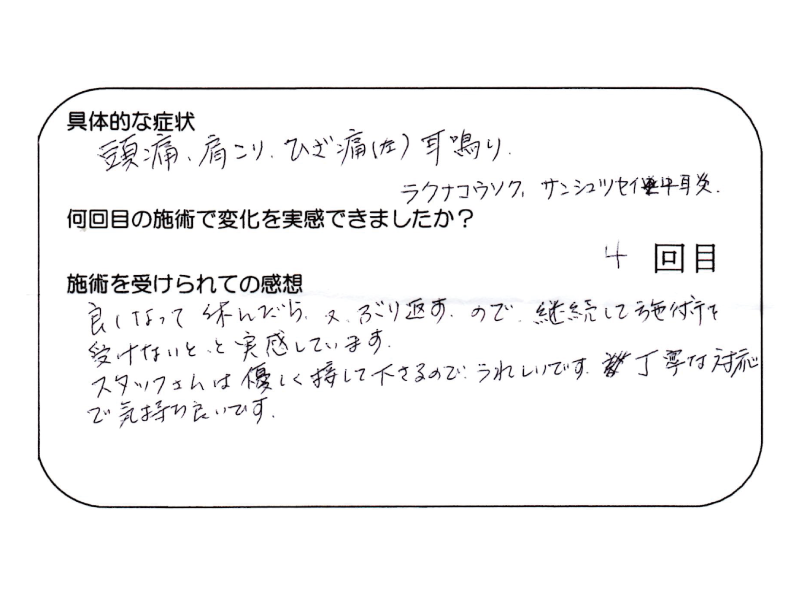 具体的な症状
頭痛、肩こり、ひざ痛(左)耳鳴り.
ラクナコウソク, サンシュツセイ中耳炎.
何回目の施術で変化を実感できましたか?
4 回目
施術を受けられての感想
良くなって休んだら、又、ぶり返す、ので、継続して施術を
受けないと、と実感しています.
スタッフさんは優しく接して下さるので、うれしいです. 丁寧な対応
で気持ち良いです.